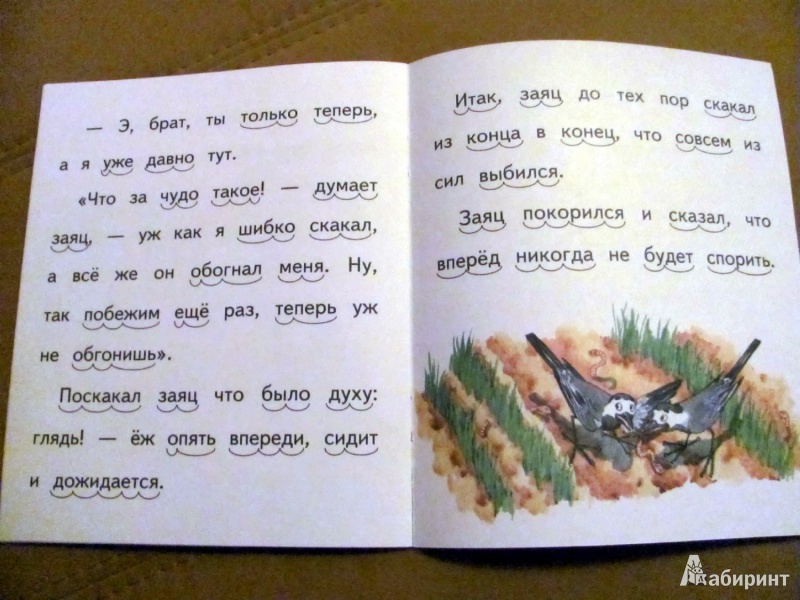 — Э, брат, ты только теперь,
а я уже давно тут.
«Что за чудо такое! — думает
заяц, — уж как я шибко скакал,
а всё же он обогнал меня. Ну,
так побежим ещё раз, теперь уж
не обгонишь».
Поскакал заяц что было духу:
глядь! — ёж опять впереди, сидит
и дожидается.
Итак, заяц до тех пор скакал
из конца в конец, что совсем из
сил выбился.
Заяц покорился и сказал, что
вперёд никогда не будет спорить.
Лабиринт